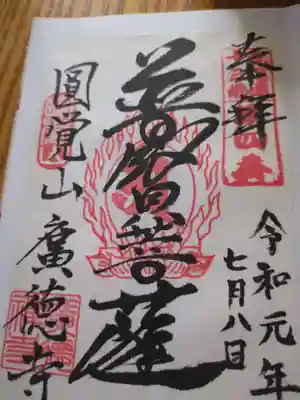 奉拝
令和元年
七月八日
普賢菩薩
圓覚山 廣徳寺